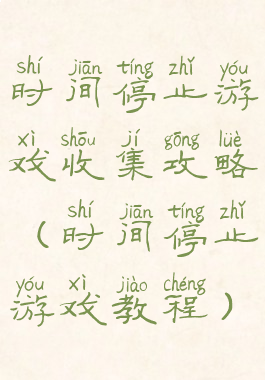 shí jiān tíng zhǐ yóu
时间停止游
xì shōu jí gōng lüè
戏收集攻略
shí jiān tíng zhǐ
（时间停止
yóu xì jiào chéng
游戏教程）